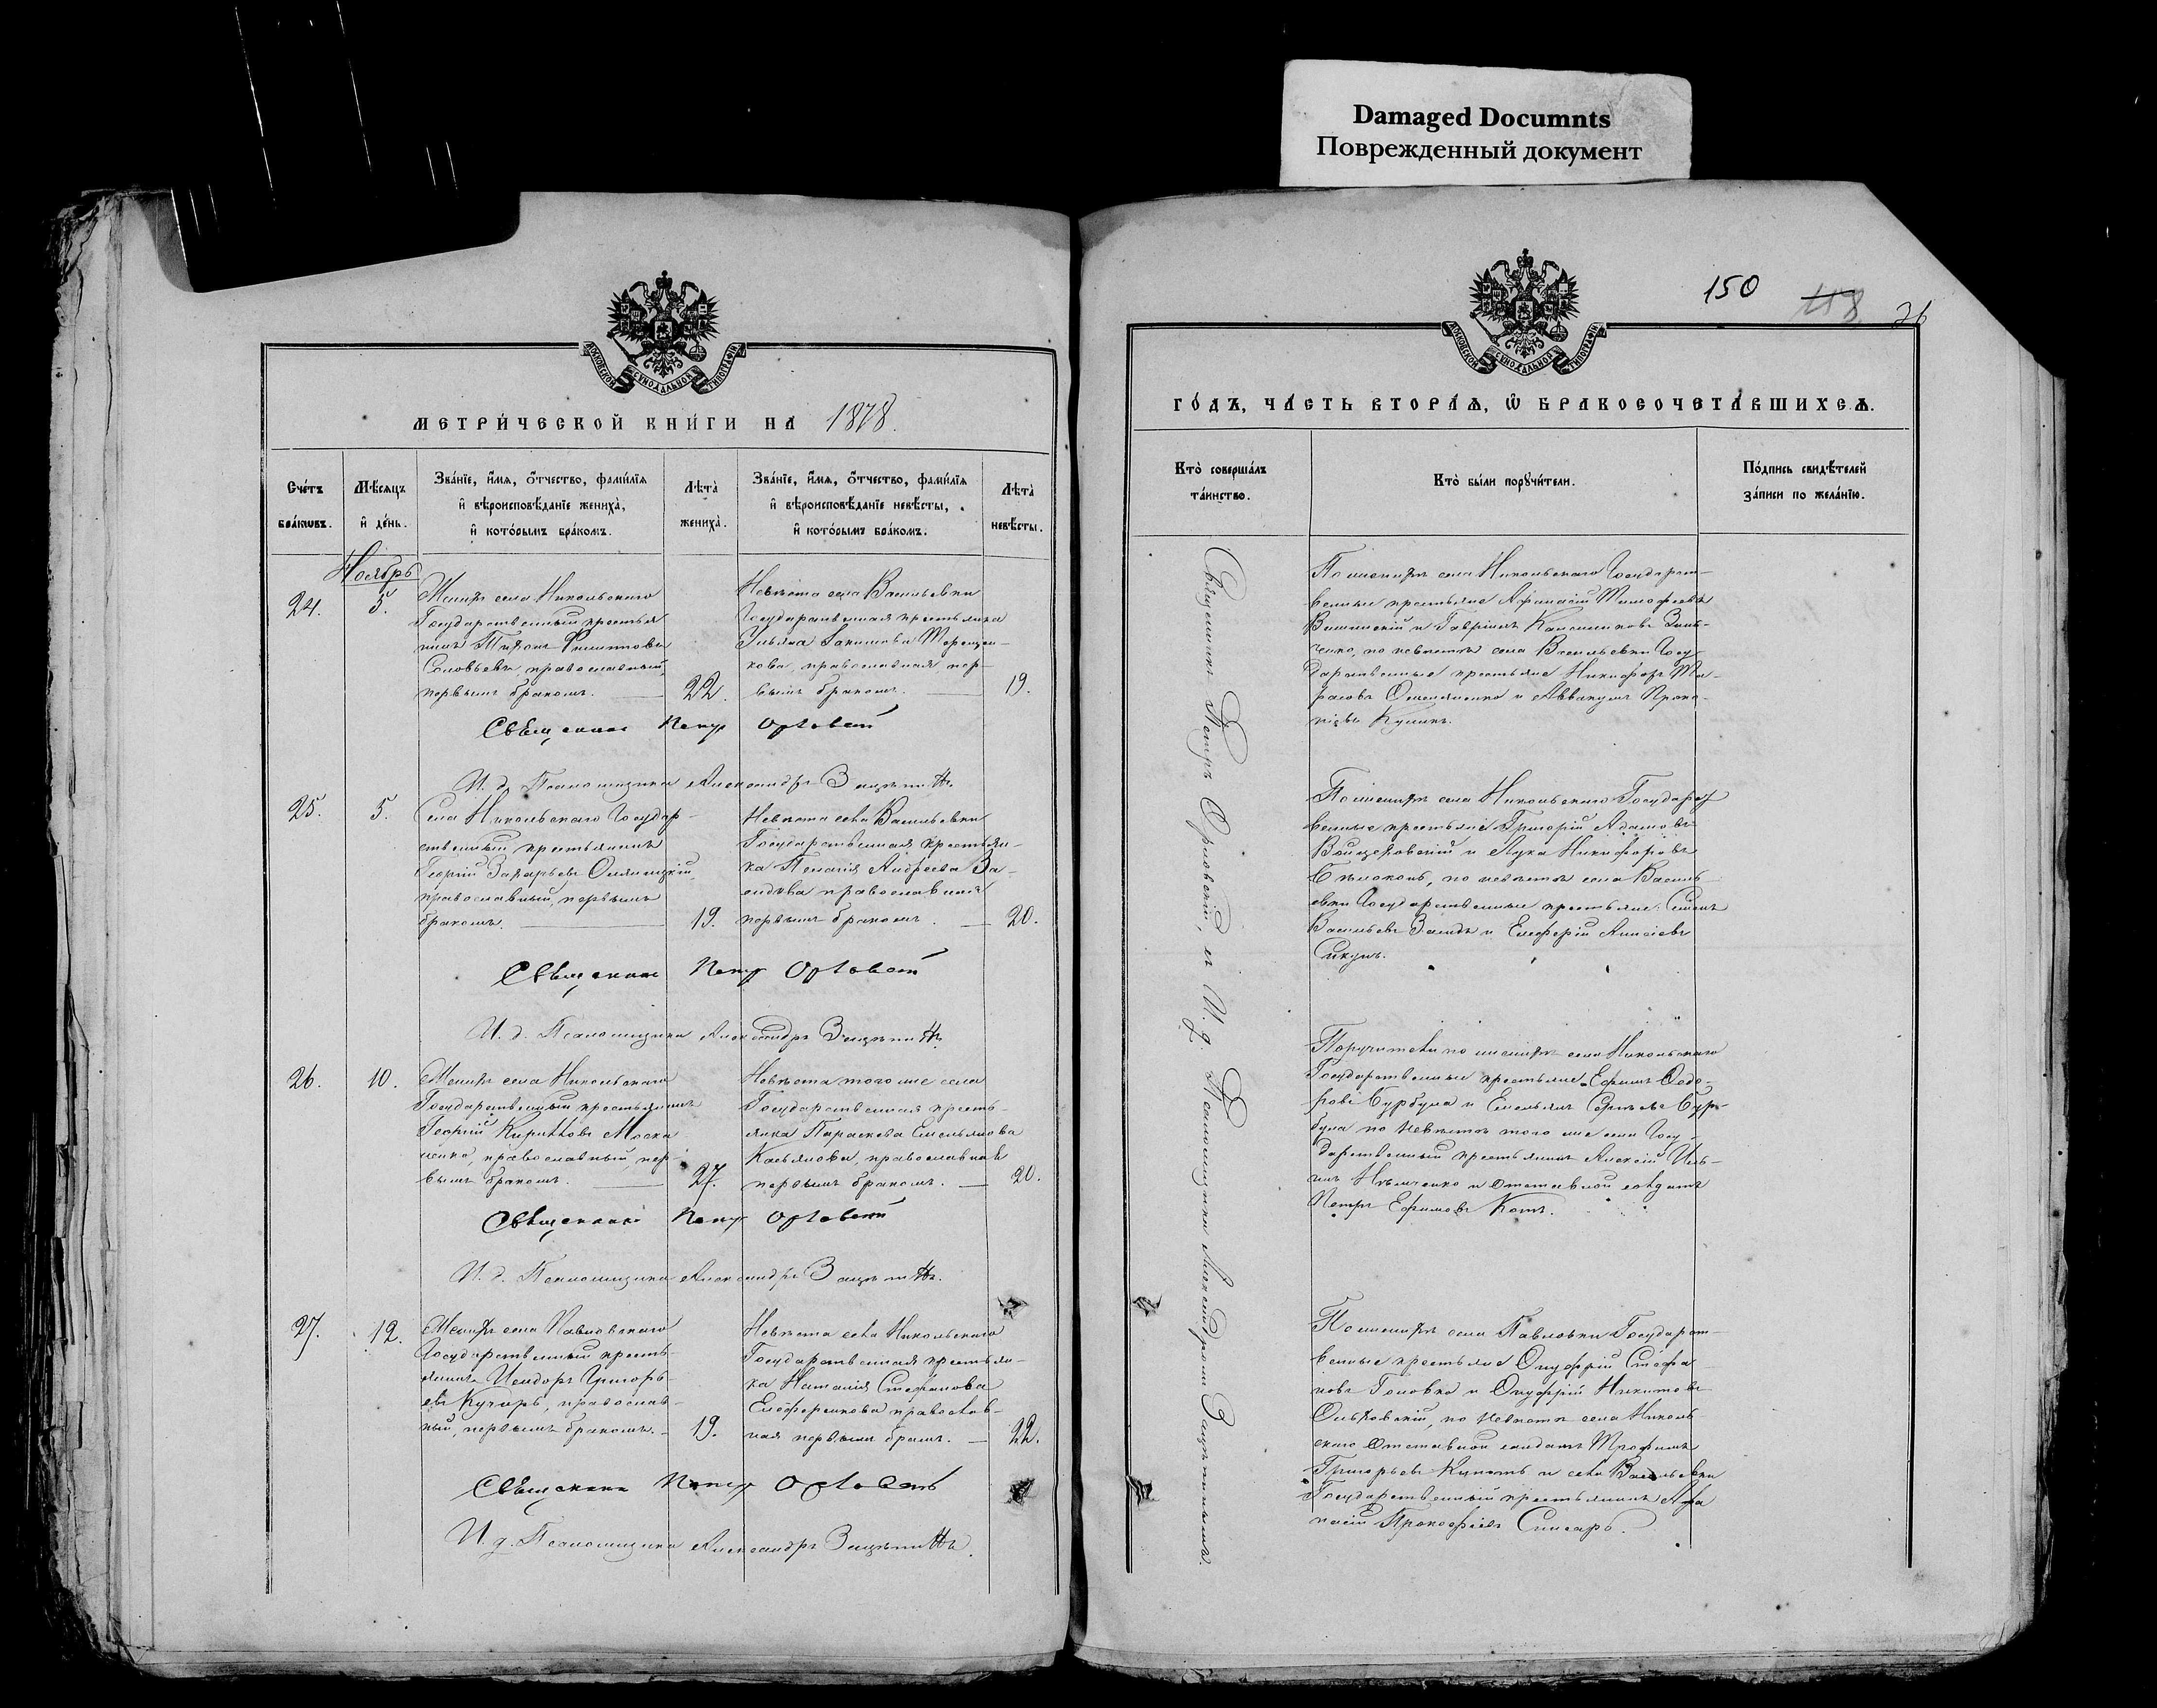 Damaged Documnts
Поврежденный документ
МОСКОВСКОЙ СѴНОДАЛЬНОЙ ТИПОГРАФІИ
МЕТРИ́ЧЕСКОЙ КНИ́ГИ НА 1878.
Сче́тъ бра́кωвъ.
Мѣ́сяцъ и҆ де́нь.
Зва́нїе, и҆́мя, ѻ҆́тчество, фами́лїя
и҆ вѣроисповѣ́данїе жениха̀,
и҆ кото́рымъ бра́комъ.
Лѣ́та̀ жениха̀.
Зва́нїе, и҆́мя, ѻ҆́тчество, фами́лїя
и҆ вѣроисповѣ́данїе невѣ́сты,
и҆ кото́рымъ бра́комъ.
Лѣ́та̀ невѣ́сты.
Ноябрь
24.
5.
Женихъ села Никольскаго
Государственный крестья
нинъ Тихонъ Филипповъ
Соловьевъ, православный,
первымъ бракомъ.
22.
Невѣста села Васильевки
Государственная крестьянка
Ульяна
кова, православная пер-
вымъ бракомъ.
19.
Священникъ Петръ Орловскій
И. д. Псаломщика Александръ
25.
5.
Села Никольскаго Государ-
ственный крестьянинъ
Георгій Захарьевъ
православный, первымъ
бракомъ.
19.
Невѣста села Васильевки
Государственная крестьян-
ка Пелагія Андреева За-
православная
первымъ бракомъ.
20.
Священникъ Петръ Орловскій
И. д. Псаломщика Александръ
26.
10.
Женихъ села Никольскаго
Государственный крестьянинъ
Георгій Кирилловъ Моска
ленко, православный, пер-
вымъ бракомъ.
27.
Невѣста того же села
Государственная кресть-
янка Параскева Емельянова
Касьянова, православная
первымъ бракомъ.
20.
Священникъ Петръ Орловскій
И. д. Псаломщика Александръ
27.
12.
Женихъ села Павловскаго
Государственный кресть-
янинъ Исидоръ Григорь-
евъ Кучеръ, православ-
ный, первымъ бракомъ.
19.
Невѣста села Никольскаго
Государственная крестьян-
ка Наталія Стефанова
Елеференкова православ-
ная первымъ бракомъ.
22.
Священникъ Петръ Орловскій
И. д. Псаломщика Александръ
150
118
МОСКОВСКОЙ СѴНОДАЛЬНОЙ ТИПОГРАФІИ
ГО́ДЪ, ЧА́СТЬ ВТОРА́Я, Ѽ БРАКОСОЧЕТА́ВШИХСЯ.
Кто̀ соверша́лъ
та́инство.
Кто̀ бы́ли порꙋчи́тели.
По́дпись свидѣ́телей
за́писи по жела́нїю.
Священникъ Петръ Орловскій, и И. д. Псаломщика Александръ
По женихѣ села Никольскаго Государст-
венные крестьяне Афанасій Тимофеевъ
Вишинскій и Гавріилъ
ченко, по невѣстѣ села Васильевки Госу-
дарственные крестьяне Никифоръ Та-
расовъ Омельченко и Аввакумъ Проко-
піевъ Куликъ.
По женихѣ села Никольскаго Государст
венные крестьяне Григорій Адамовъ
Войцеховскій и Лука Никифоровъ
по невѣстѣ села Василь
евки Государственные крестьяне: Семенъ
Васильевъ и Елеферій Алексіевъ
Поручители по женихѣ села Никольскаго
Государственные крестьяне Ефимъ Ѳедо-
ровъ Бурбула и Емельянъ Сергѣевъ Бур-
була по невѣстѣ того же села Госу-
дарственный крестьянинъ Алексій Иль-
инъ и отставной солдатъ
Петръ Ефимовъ Котъ.
По женихѣ села Павловки Государст-
венные крестьяне Онуфрій Стефа
новъ Головко и Онуфрій Никитовъ
Ольховскій, по невѣстѣ села Николь
скаго Отставной солдатъ Трофимъ
Григорьевъ и села Васильевки
Государственный крестьянинъ Афа
насій Прокофіевъ Слисарь.